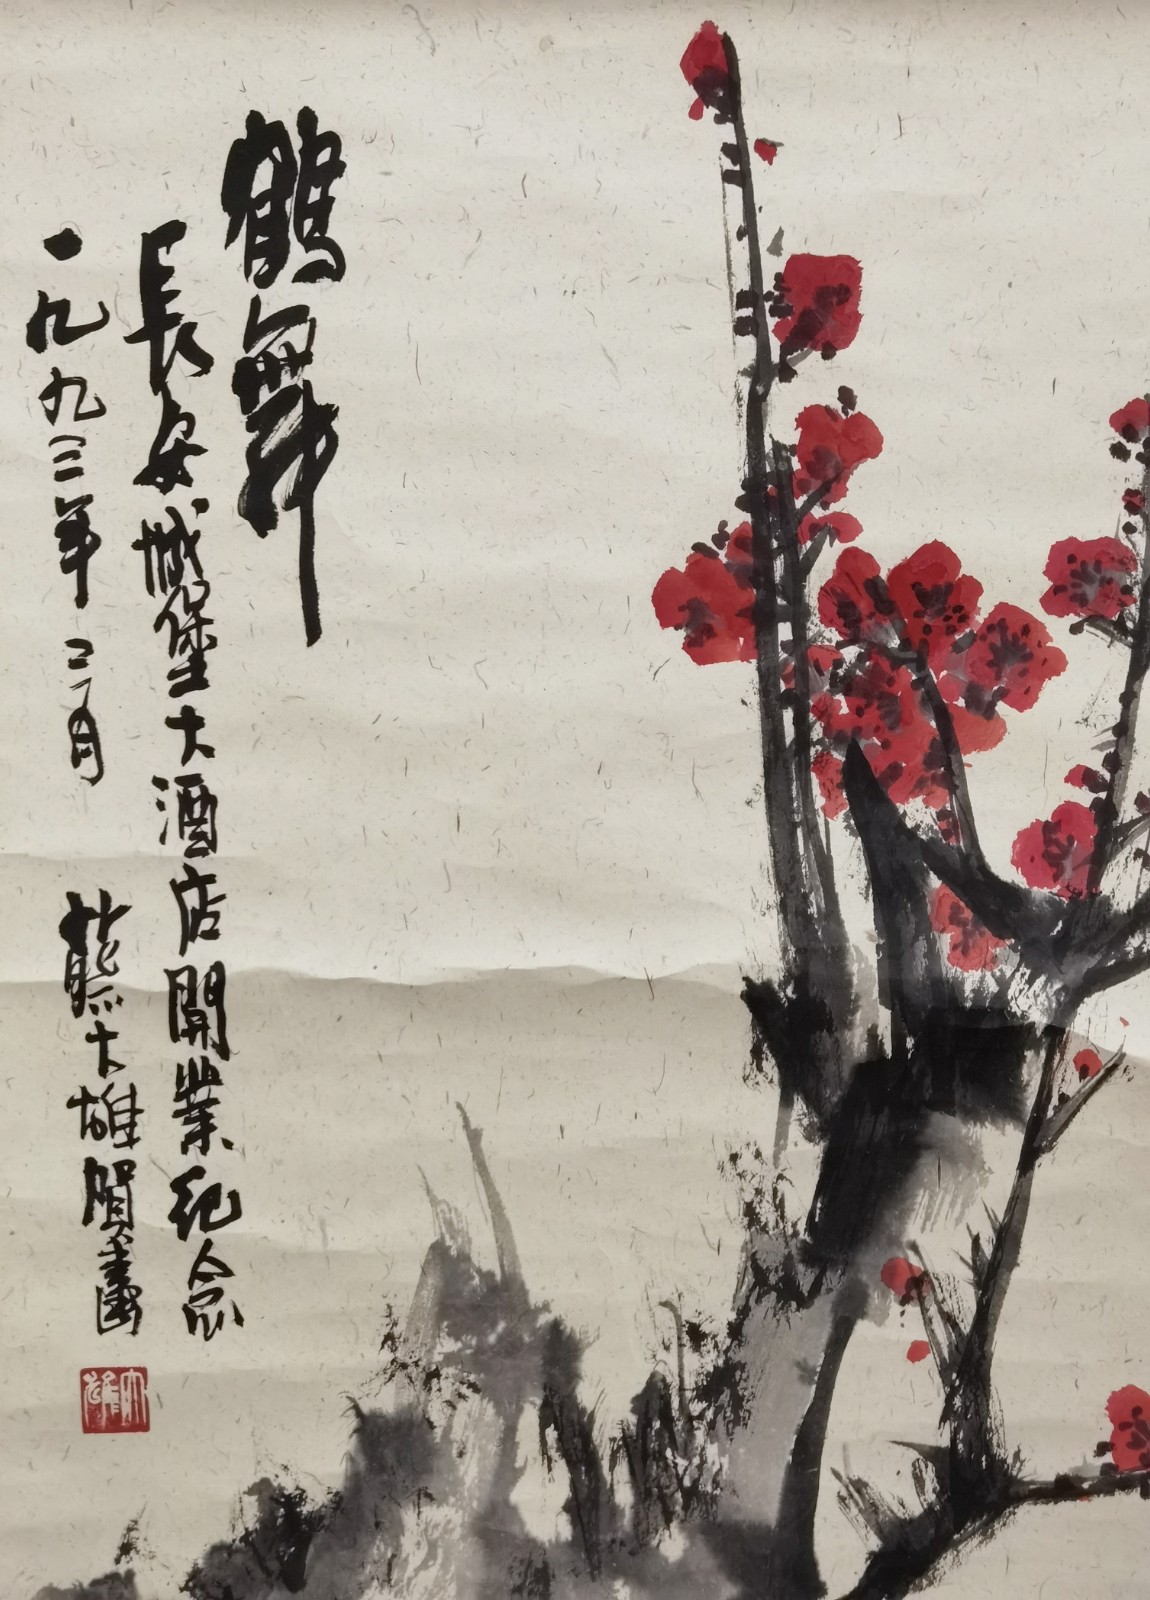 鶴舞
長安城堡大酒店開業紀念
一九九三年二月
熊大雄賀畫
大雄